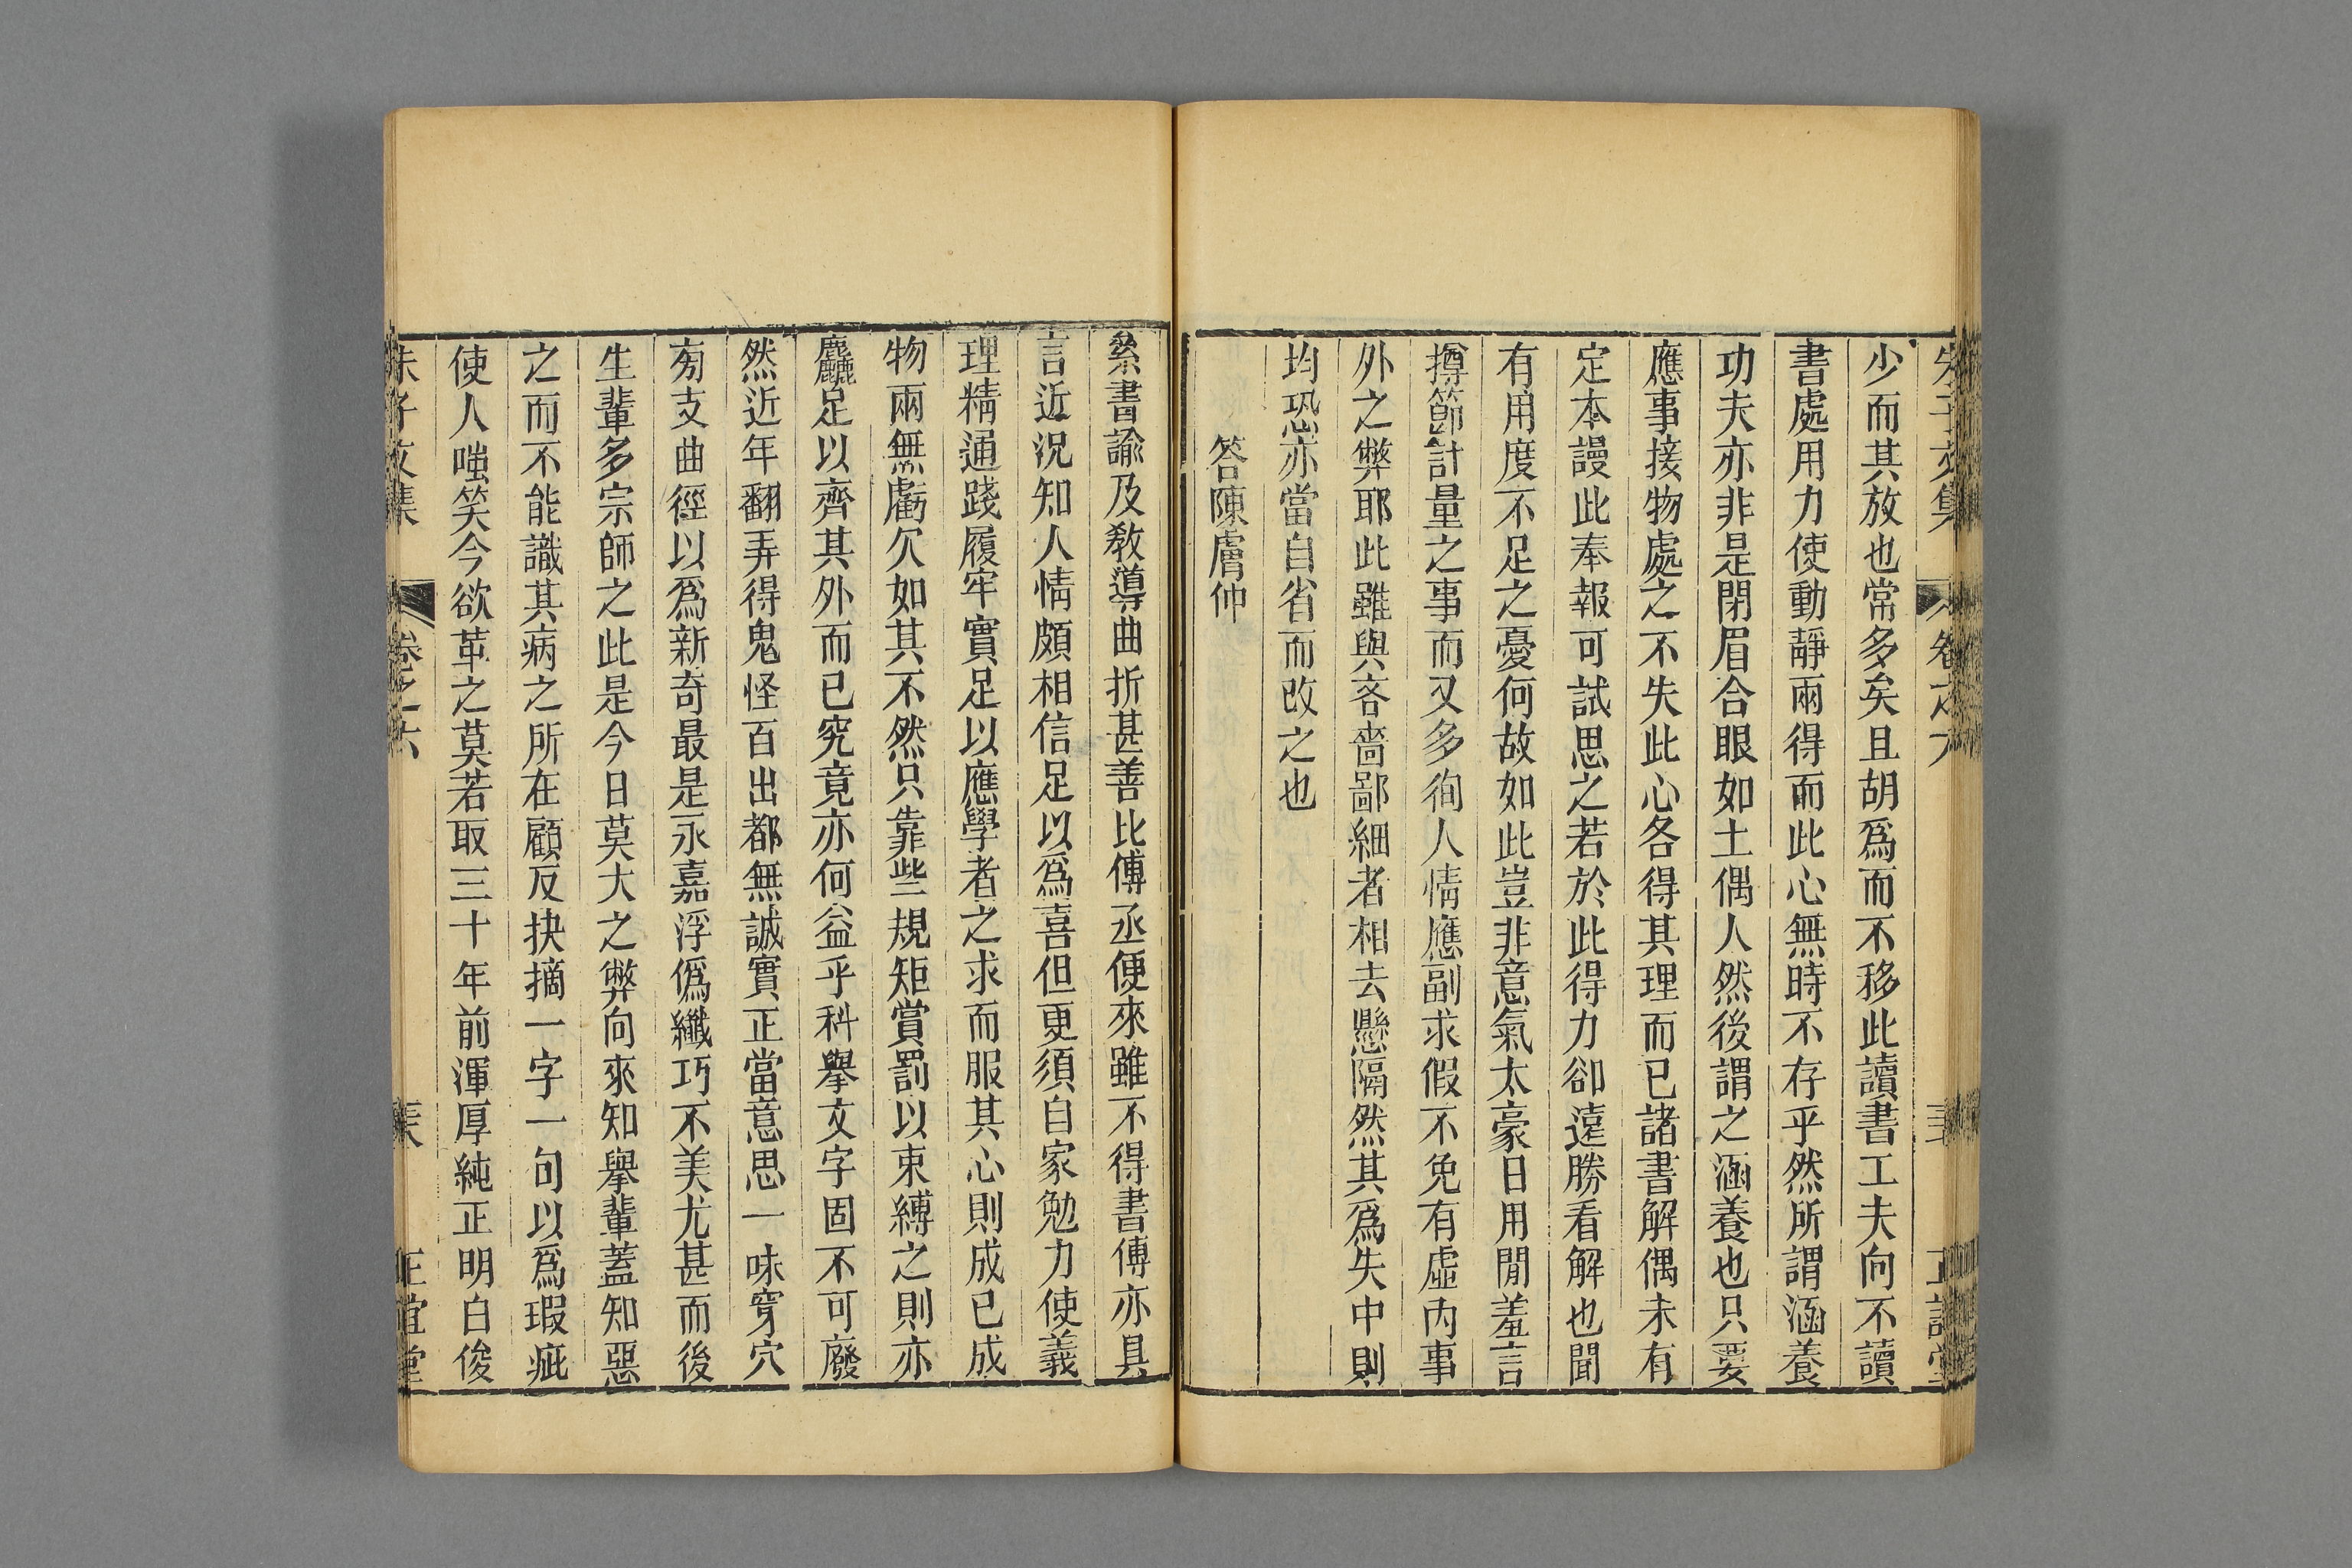 朱子文集 卷之六 正誼堂
少而其放也常多矣且胡爲而不移此讀書工夫向不讀
書處用力使動靜兩得而此心無時不存乎然所謂涵養
功夫亦非是閉眉合眼如土偶人然後謂之涵養也只要
應事接物處之不失此心各得其理而已諸書解偶未有
定本謾此奉報可試思之若於此得力卻遠勝看解也聞
有用度不足之憂何故如此豈非意氣太豪日用閒羞言
撙節計量之事而又多徇人情應副求假不免有虛內事
外之弊耶此雖與吝嗇鄙細者相去懸隔然其爲失中則
均恐亦當自省而改之也
答陳膚仲
絫書諭及敎導曲折甚善比傅丞便來雖不得書傅亦具
言近況知人情頗相信足以爲喜但更須自家勉力使義
理精通踐履牢實足以應學者之求而服其心則成已成
物兩無虧欠如其不然只靠些規矩賞罰以束縛之則亦
麤足以齊其外而已究竟亦何益乎科擧文字固不可廢
然近年翻弄得鬼怪百出都無誠實正當意思一味穿穴
旁支曲徑以爲新奇最是永嘉浮僞纖巧不美尤甚而後
生輩多宗師之此是今日莫大之弊向來知擧輩蓋知惡
之而不能識其病之所在顧反抉摘一字一句以爲瑕疵
使人嗤笑今欲革之莫若取三十年前渾厚純正明白俊
朱子文集 卷之六 正誼堂